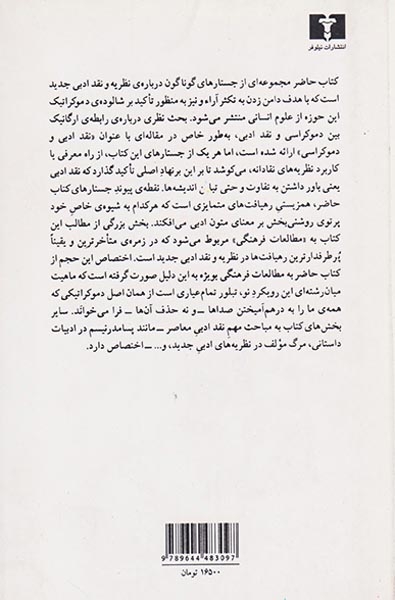 انتشارات نیلوفر
کتاب حاضر مجموعه‌ای از جستارهای گوناگون درباره‌ی نظریه و نقد ادبی جدید
است که با هدف دامن زدن به تکثر آراء و نیز به منظور تأکید بر شالوده‌ی دموکراتیک
این حوزه از علوم انسانی منتشر می‌شود. بحث نظری درباره‌ی رابطه‌ی ارگانیک
بین دموکراسی و نقد ادبی، به‌طور خاص در مقاله‌ای با عنوان «نقد ادبی و
دموکراسی» ارائه شده است، اما هر یک از جستارهای این کتاب، از راه معرفی یا
کاربرد نظریه‌های نقادانه، می‌کوشد تا بر این برنهادِ اصلی تأکید گذارد که نقد ادبی
یعنی باور داشتن به تفاوت و حتی تباین اندیشه‌ها. نقطه‌ی پیوندِ جستارهای کتاب
حاضر، همزیستیِ رهیافت‌های متمایزی است که هرکدام به شیوه‌ی خاصِ خود
پرتوی روشنی‌بخش بر معنای متون ادبی می‌افکند. بخش بزرگی از مطالب این
کتاب به «مطالعات فرهنگی» مربوط می‌شود که در زمره‌ی متأخرترین و یقیناً
پُرطرفدارترین رهیافت‌ها در نظریه و نقد ادبی جدید است. اختصاص این حجم از
کتاب حاضر به مطالعات فرهنگی بویژه به این دلیل صورت گرفته است که ماهیت
میان‌رشته‌ای این رویکردِ نو، تبلور تمام‌عیاری است از همان اصل دموکراتیکی که
همه‌ی ما را به درهم‌آمیختن صداها ــ و نه حذف آن‌ها ــ فرا می‌خوانَد. سایر
بخش‌های کتاب به مباحث مهمِ نقدِ ادبیِ معاصر ــ مانند پسامدرنیسم در ادبیات
داستانی، مرگ مؤلف در نظریه‌های ادبیِ جدید، و... ــ اختصاص دارد.
9 789644 483097
۱۶۵۰۰ تومان